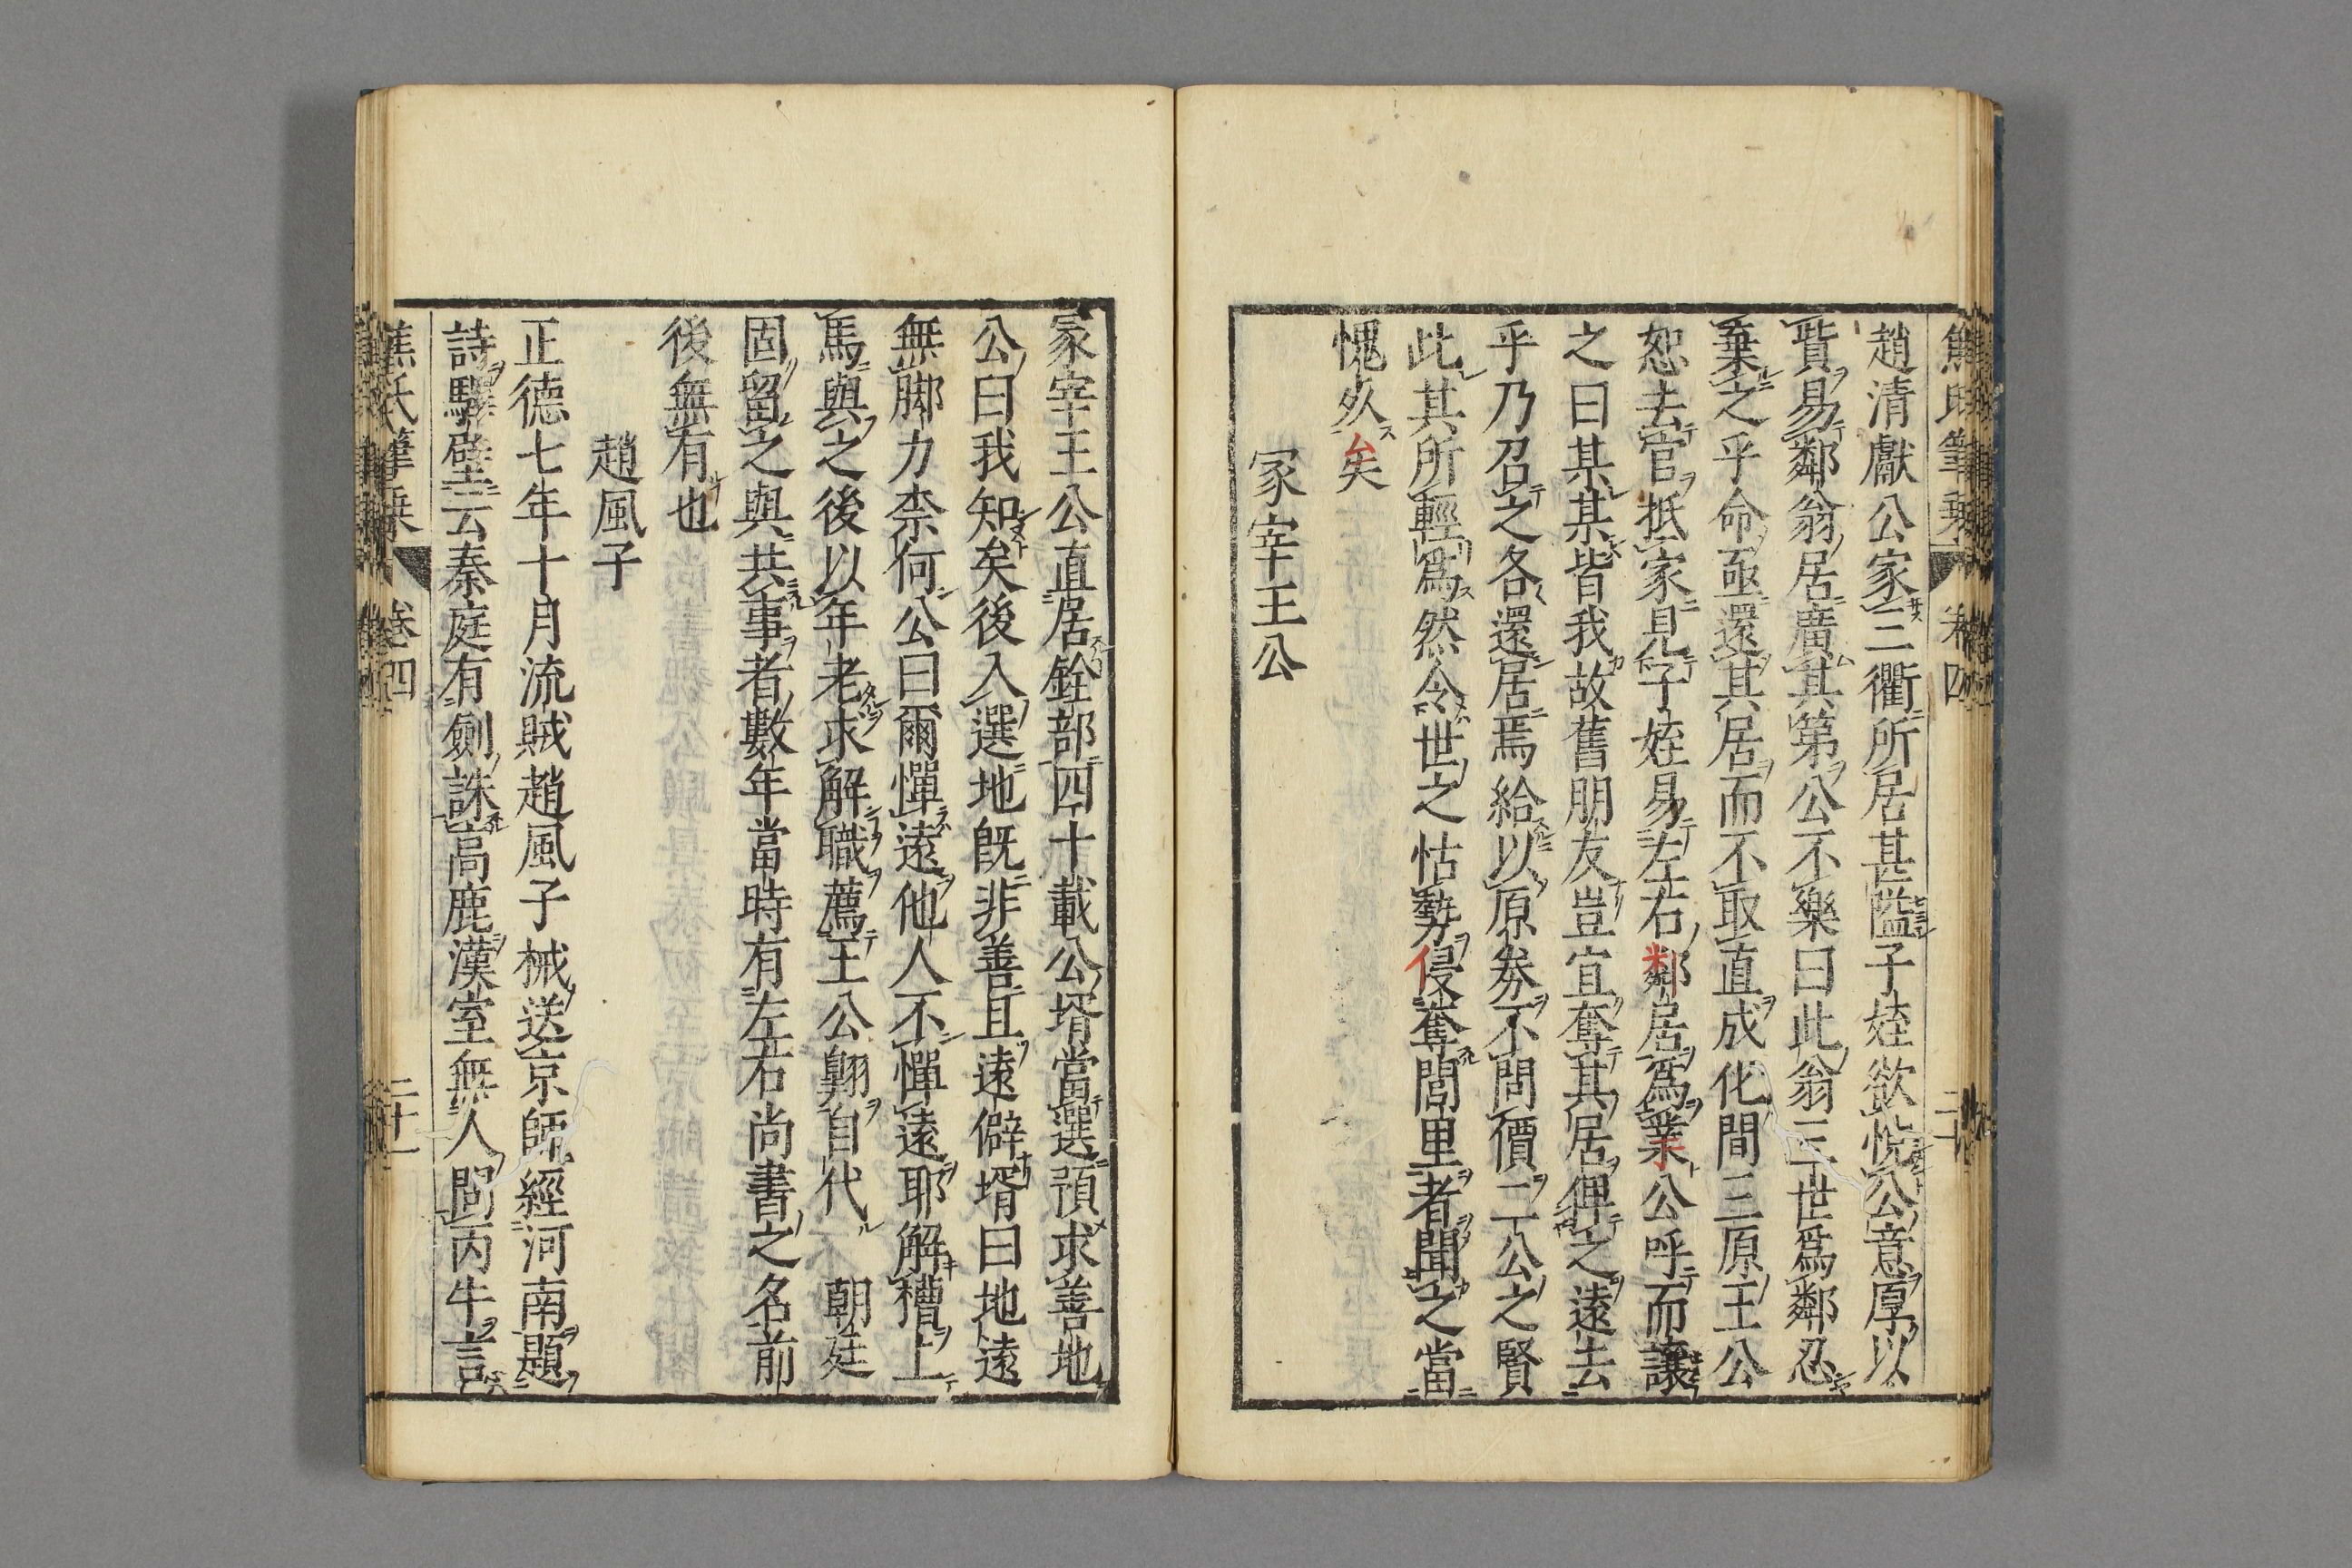 焦氏筆乗 卷四
趙清獻公家三衢所居甚隘子姪欲悅公意厚以
貲易鄰翁居廣其第公不樂曰此翁三世爲鄰忍
棄之乎命亟還其居而不取直成化間三原王公
恕去官抵家見子姪易左右鄰居爲業公呼而讓
之曰某某皆我故舊朋友豈宜奪其居俾之遠去
乎乃召之各還居焉給以原券不問價二公之賢
此其所輕爲然令世之怙勢侵奪閭里者聞之當
愧死矣
冢宰王公
冢宰王公直居銓部四十載公壻當選預求善地
公曰我知矣後入選地旣非善且遠僻壻曰地遠
無脚力柰何公曰爾憚遠他人不憚遠耶解糟上
馬與之後以年老求解職薦王公翺自代 朝廷
固留之與共事者數年當時有左右尚書之名前
後無有也
趙風子
正德七年十月流賊趙風子械送京師經河南題
詩驛壁云秦庭有劍誅高鹿漢室無人問丙牛言
焦氏筆乗 卷四 二十一